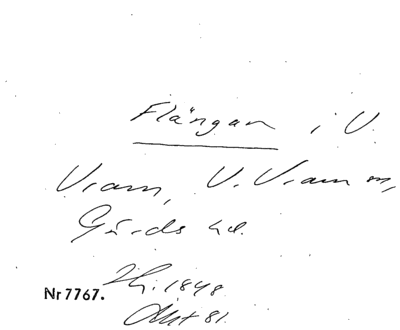 Flängan i V.
Vram, V. Vram sn,
Gärds hd.
Hi. 1848.
Nr 7767. Akt 81.